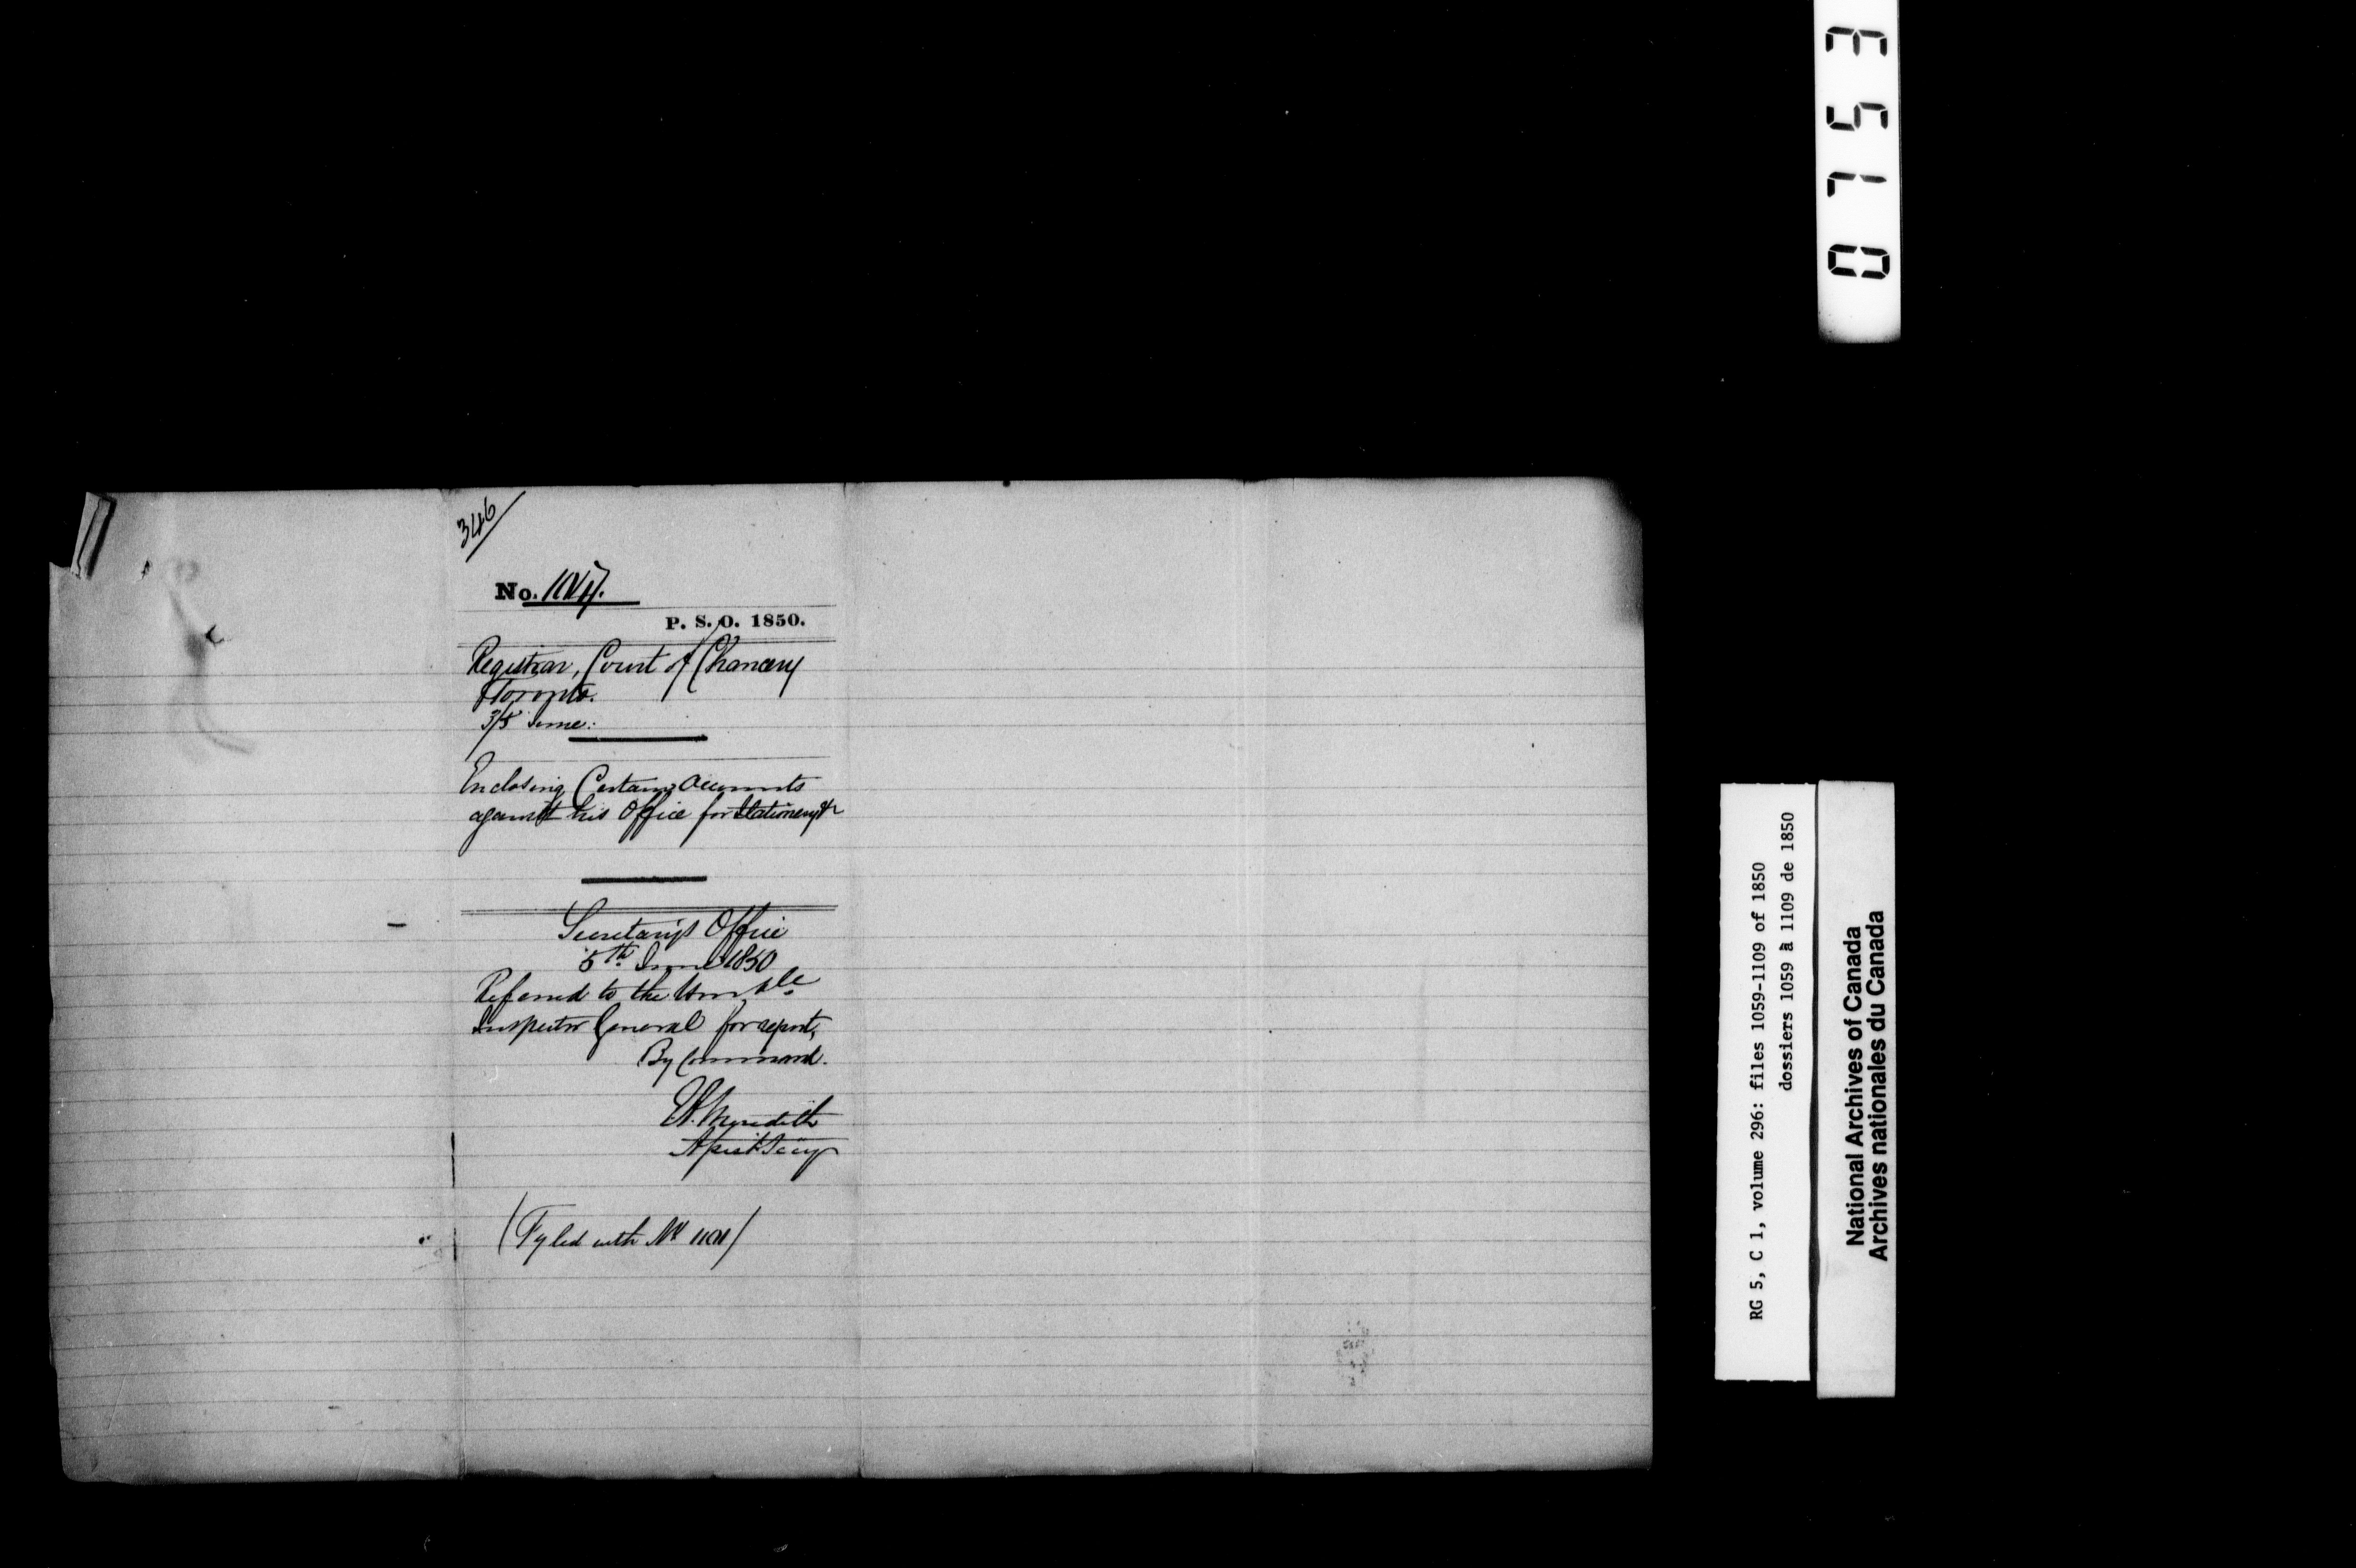 346
No.
P. S. O. 1850.
Registrar, Court of Chancery
Toronto.
3/5 June:
Enclosing Certain Accounts
against his Office for Stationery &c
Secretary's Office
5th. June 1850
Referred to the Honble
Inspector General for report,
By Command.
E. A. Meredith
Assist Secy
(Fyled with No 1101)
0753
RG 5, C 1, volume 296: files 1059-1109 of 1850
dossiers 1059 à 1109 de 1850
National Archives of Canada
Archives nationales du Canada